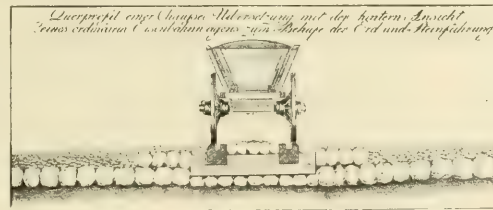 Querprofil einer Chaussée Uebersetzung mit der hintern Ansicht
eines ordinären Eisenbahnwagens zum Behufe der Erd und Steinführung